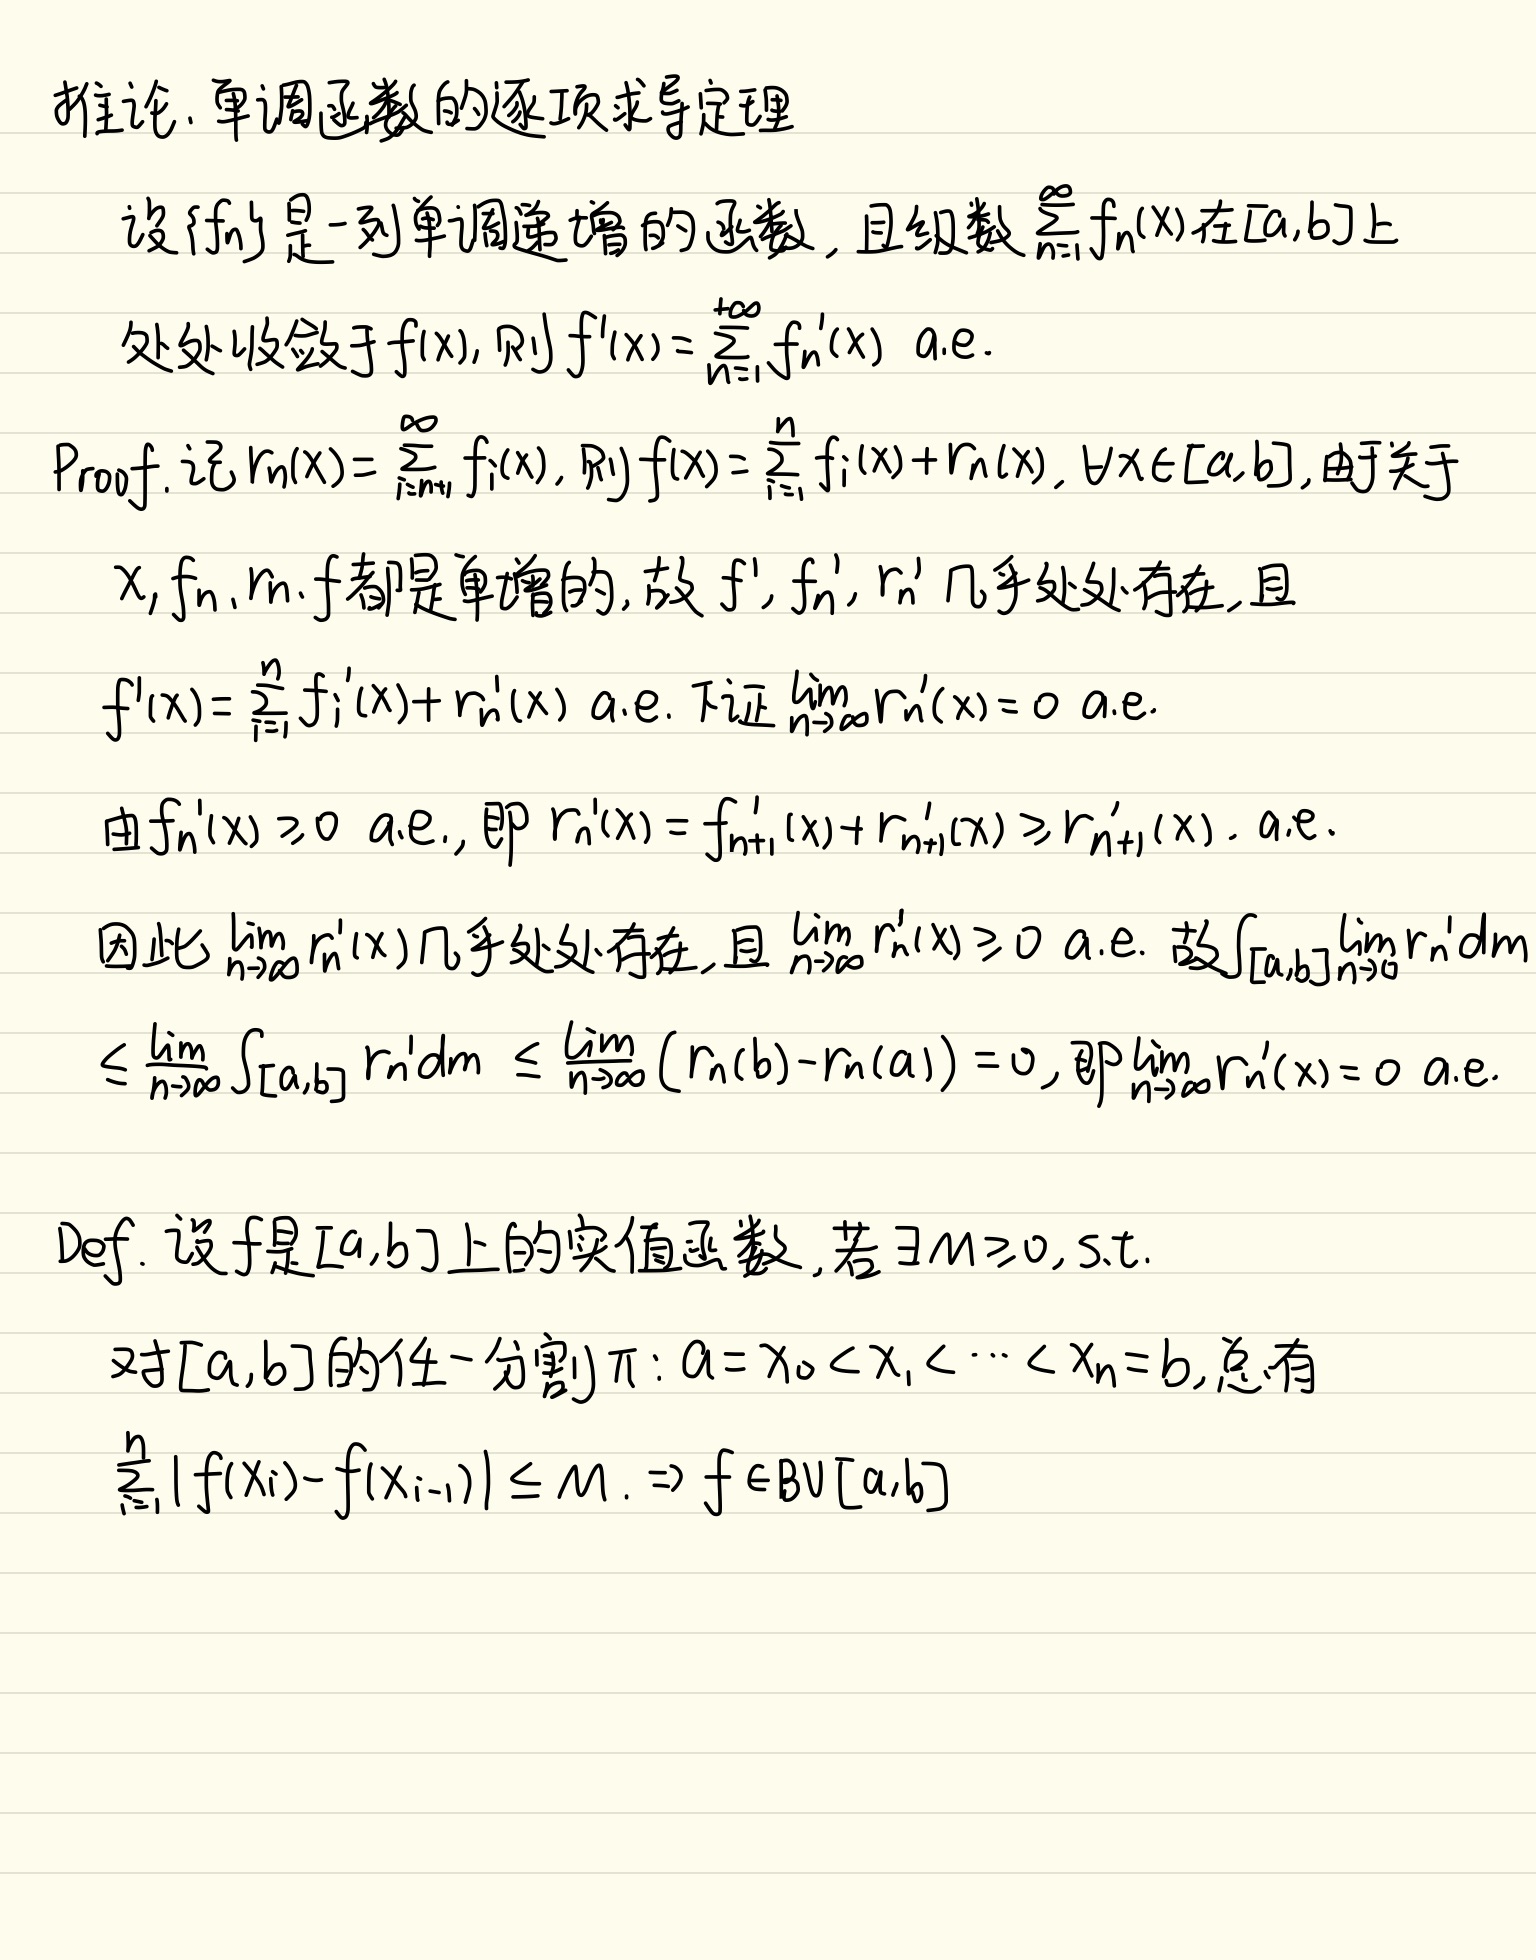 推论. 单调函数的逐项求导定理
设{fn}是一列单调递增的函数, 且级数 ∑_{n=1}^{∞} fn(x) 在[a,b]上
处处收敛于f(x), 则 f'(x) = ∑_{n=1}^{+∞} fn'(x) a.e.
Proof. 记 rn(x) = ∑_{i=n+1}^{∞} fi(x), 则 f(x) = ∑_{i=1}^{n} fi(x) + rn(x), ∀x∈[a,b], 由于关于
x, fn、rn、f都是单增的, 故 f', fn', rn' 几乎处处存在, 且
f'(x) = ∑_{i=1}^{n} fi'(x) + rn'(x) a.e. 下证 lim_{n→∞} rn'(x) = 0 a.e.
由 fn'(x) ≥ 0 a.e., 即 rn'(x) = f'_{n+1}(x) + r'_{n+1}(x) ≥ r'_{n+1}(x). a.e.
因此 lim_{n→∞} rn'(x) 几乎处处存在, 且 lim_{n→∞} rn'(x) ≥ 0 a.e. 故 ∫_{[a,b]} lim_{n→∞} rn' dm
≤ \underline{lim}_{n→∞} ∫_{[a,b]} rn' dm ≤ \underline{lim}_{n→∞} (rn(b) - rn(a)) = 0, 即 lim_{n→∞} rn'(x) = 0 a.e.
Def. 设f是[a,b]上的实值函数, 若∃M≥0, s.t.
对[a,b]的任一分割π: a = x0 < x1 < ⋯ < xn = b, 总有
∑_{i=1}^{n} |f(xi) - f(x_{i-1})| ≤ M. ⇒ f∈BV[a,b]